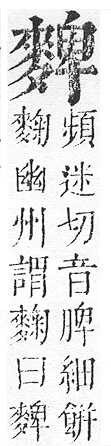 䴽
頻迷切音脾細餅
麴幽州謂麴曰䴽